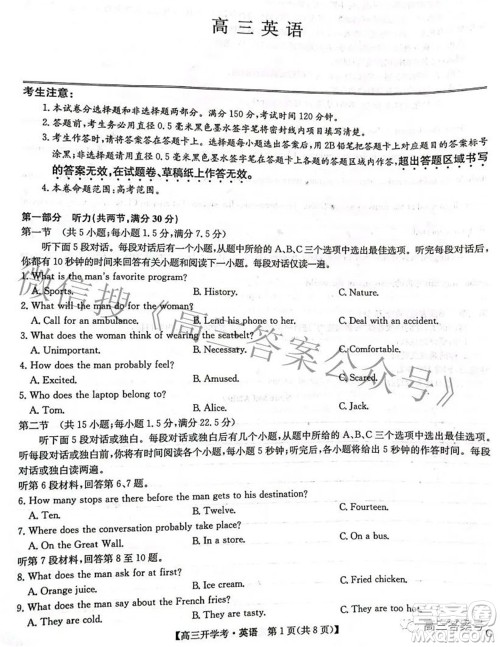 高三英语
考生注意：
1.本试卷分选择题和非选择题两部分。满分150分,考试时间120分钟。
2.答题前,考生务必用直径0.5毫米黑色墨水签字笔将密封线内项目填写清楚。
3.考生作答时,请将答案答在答题卡上。选择题每小题选出答案后,用2B铅笔把答题卡上对应题目的答案标号
涂黑;非选择题请用直径0.5毫米黑色墨水签字笔在答题卡上各题的答题区域内作答,超出答题区域书写
的答案无效,在试题卷、草稿纸上作答无效。
4.本卷命题范围:高考范围。
第一部分 听力(共两节,满分30分)
第一节 (共5小题;每小题1.5分,满分7.5分)
听下面5段对话。每段对话后有一个小题,从题中所给的A、B、C三个选项中选出最佳选项。听完每段对话后,
你都有10秒钟的时间来回答有关小题和阅读下一小题。每段对话仅读一遍。
1. What is the man's favorite program?
A. Sports. B. History. C. Nature.
2. What will the man do for the woman?
A. Call for an ambulance. B. Lend his phone to her. C. Deal with an accident.
3. What does the woman think of wearing the seatbelt?
A. Unimportant. B. Necessary. C. Comfortable.
4. How does the man probably feel?
A. Excited. B. Amused. C. Scared.
5. Who does the laptop belong to?
A. Tom. B. Alice. C. Jack.
第二节 (共15小题;每小题1.5分,满分22.5分)
听下面5段对话或独白。每段对话或独白后有几个小题,从题中所给的A、B、C三个选项中选出最佳选项。
听每段对话或独白前,你将有时间阅读各个小题,每小题5秒钟;听完后,各小题将给出5秒钟的作答时间。每段
对话或独白读两遍。
听第6段材料,回答第6、7题。
6. How many stops are there before the man gets to his destination?
A. Ten. B. Twelve. C. Fourteen.
7. Where does the conversation probably take place?
A. On the Great Wall. B. In a taxi. C. On a bus.
听第7段材料,回答第8至10题。
8. What does the man ask for at first?
A. Orange juice. B. Ice cream. C. Fried chicken.
9. What does the man say about the fries?
A. They are cold. B. They are sweet. C. They are salty.
【高三开学考·英语 第1页(共8页)】
微信搜《高三答案公众号》
高三答案号